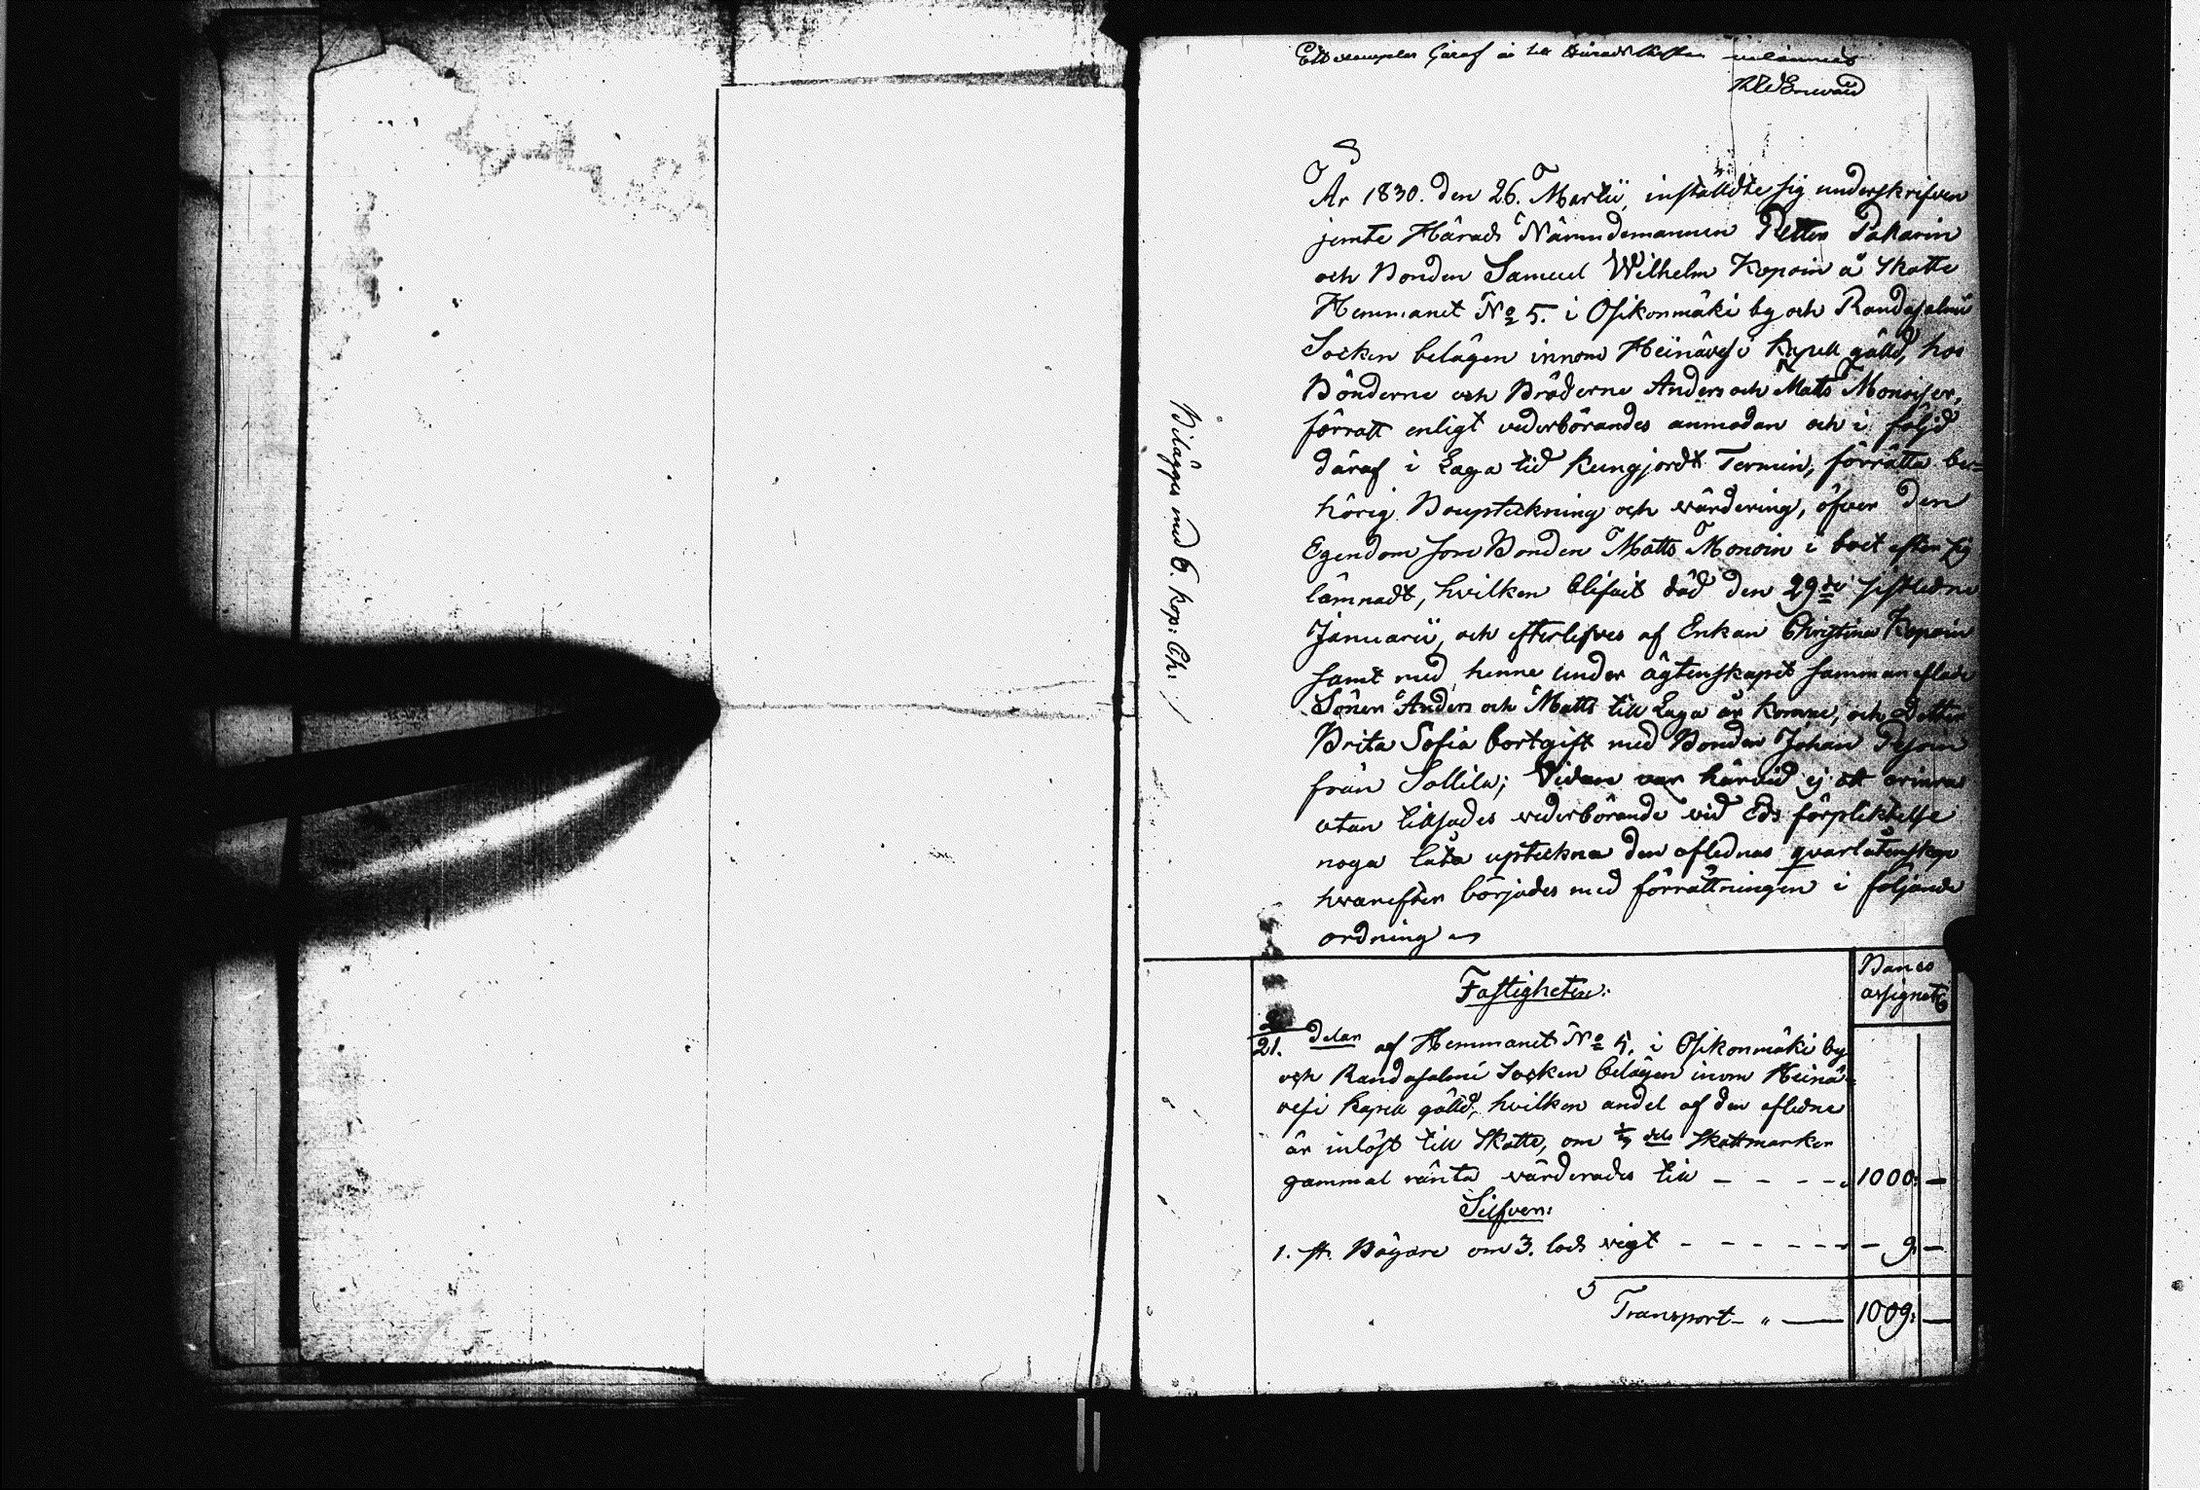 Ett exemplar häraf är till Härads Rätten inlämnad
År 1830. den 26. Martii, instäldte sig underskrifven
jemte Härads Nämndemannen Petter Pakarin
och Bonden Samuel Wilhelm Kopoin å Skatte
Hemmanet No 5. i Osikonmäki by och Randasalmi
Socken belägen innom Heinävesi Kapell gäld, hos
Bönderne och Bröderne Anders och Mats Monoiser,
förratt enligt vederbörandes anmodan och i följd
däraf i Laga tid kungjordt Termin, förrätta be=
hörig Bouptekning och wärdering, öfver den
Egendom som Bonden Matts Monoin i boet efter sig
lämnadt, hvilken blifvit död den 29de sistledne
Januarii, och efterlefves af Enkan Christina Kopoin
samt med henne under ägtenskapet sammanaflade
Söner Anders och Matts till Laga år komne, och Dotter
Brita Sofia bortgift med Bonden Johan
från Sallila; Vidare var härvid ej att erinra
utan tillsades vederbörande vid Eds förpliktelse
noga låta uptekna den aflednas qvarlåtenskap
hvarefter börjades med förrättningen i följande
ordning
Bilägges med 6. kop: Ch:
Fastigheter:
Banco
assignat
21. delar af Hemmanet No 5. i Osikonmäki by
och Randasalmi Socken belägen inom Heinä=
vesi kapell gäld, hvilken andel af den aflednе
är inlöst till Skatte, om dels Skattmarker
gammal ränta värderades till - - - - 1000: —
Silfver:
1. st. Bägare om 3. lods vigt - - - - - - 9. —
Transport - " — 1009: —